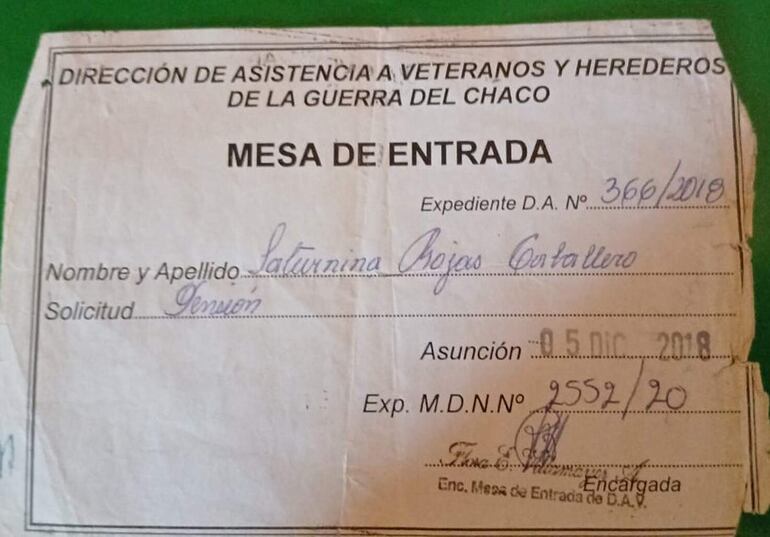 DIRECCIÓN DE ASISTENCIA A VETERANOS Y HEREDEROS
DE LA GUERRA DEL CHACO
MESA DE ENTRADA
Expediente D.A. Nº 366/2018
Nombre y Apellido Saturnina Rojas Caballero
Solicitud Pensión
Asunción 05 DIC 2018
Exp. M.D.N.Nº 2552/20
Flora E. Villamayor A.
Encargada
Enc. Mesa de Entrada de D.A.V.